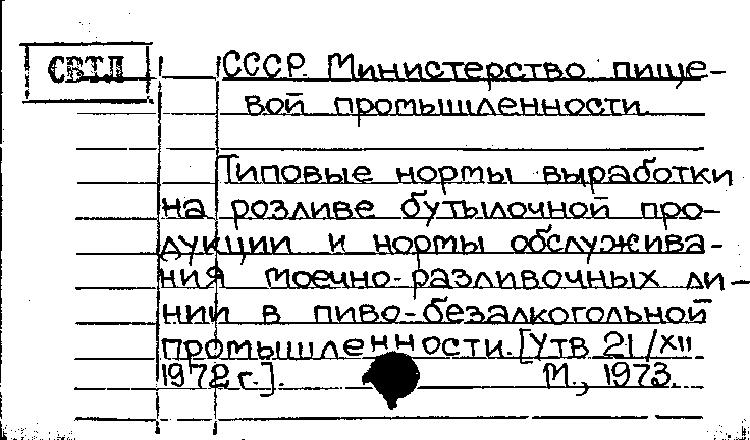 СВТЛ
СССР. Министерство пище-
вой промышленности
Типовые нормы выработки
на розливе бутылочной про-
дукции и нормы обслужива-
ния моечно-разливочных ли-
нии в пиво-безалкогольной
промышленности. [Утв 21/XII
1972 г.]. М., 1973.